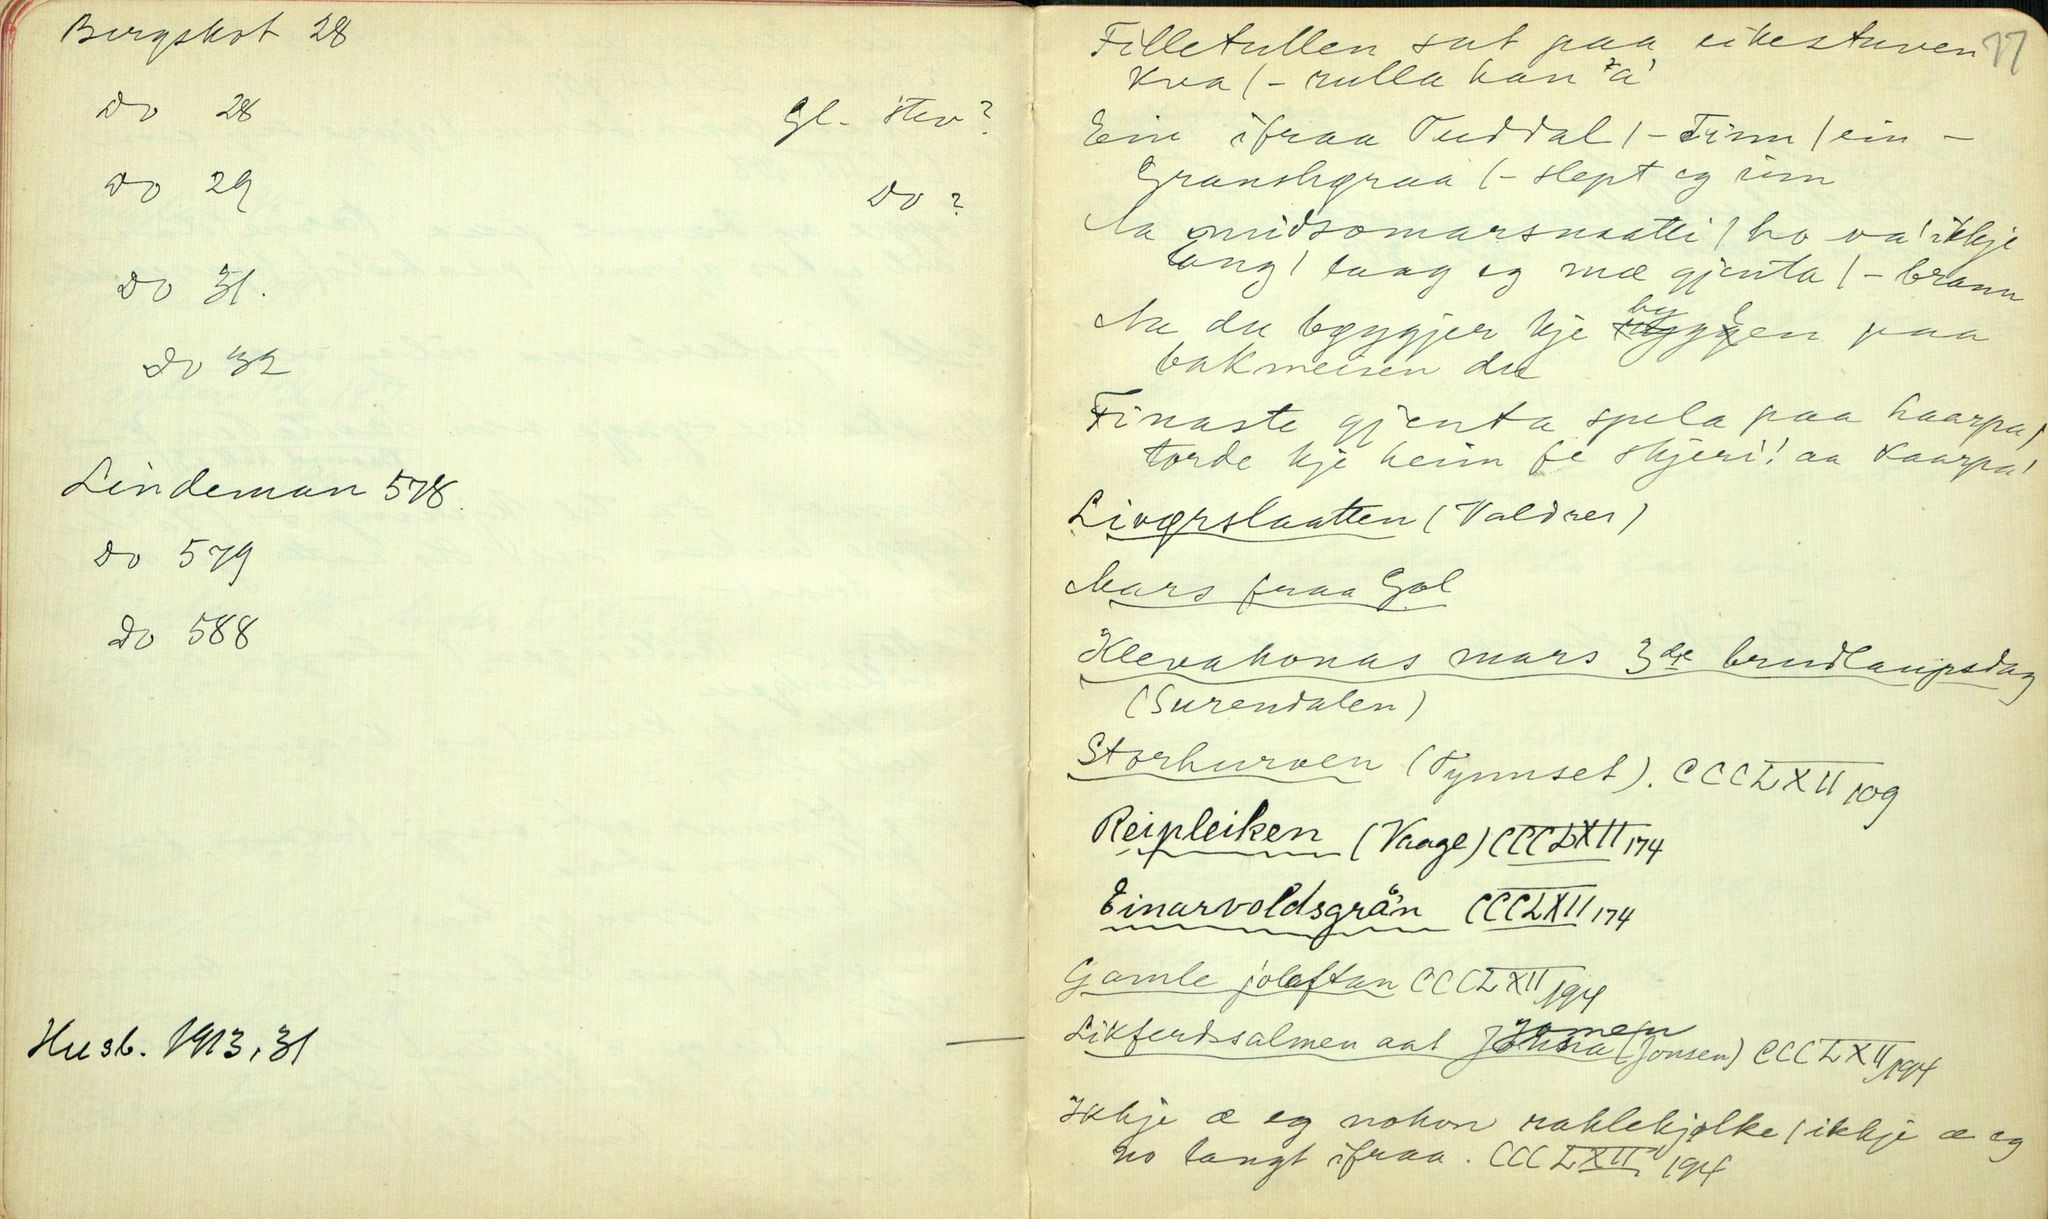 Bergskot 28
Do 28 Gl. stev?
Do 29 Do?
Do 31.
Do 32
Lindeman 578.
Do 579
Do 588
Husb. 1913, 31
77
Filletullen sat paa eikestuven
kva / - rulla han a'
Ein ifraa Tuddal / - Finn / ein -
Granshæraa / - slept eg inn
Aa midsomarsnaatti / ho va' ikkje
lang / laag eg mæ gjenta / - brann
Aa du bgygjer kje byggen paa
bakmeisen du
Finaste gjenta spela paa haarpa,
torde kje heim fe skjeri! aa kaarpa!
Livørslaatten (Valdres)
Mars fraa Gol
Klevakonas mars 3dje brudlaupsdag
(Surendalen)
Storhurven (Tynnset). CCCLXII 109
Reipleiken (Vaage) CCCLXII 174
Einarvoldsgrån CCCLXII 174
Gamle joleftan CCCLXII 194
Likferdssalmen aat Jomen (Jonsen) CCCLXII 194
Ikkje æ eg nokon raklekjølke / ikkje æ eg
no langt ifraa. CCCLXII 194